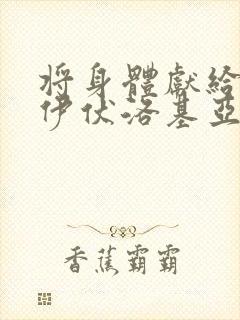 将身體獻給
伊伏洛基亞
香蕉霸霸